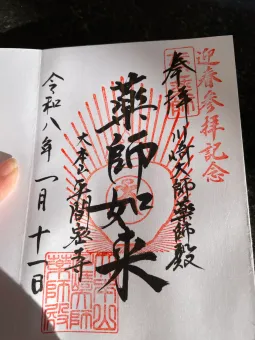 迎春参拝記念
奉拝
川崎大師薬師殿
薬師如来
大本山平間寺
令和八年一月十一日
大本山
川崎大師
薬師殿